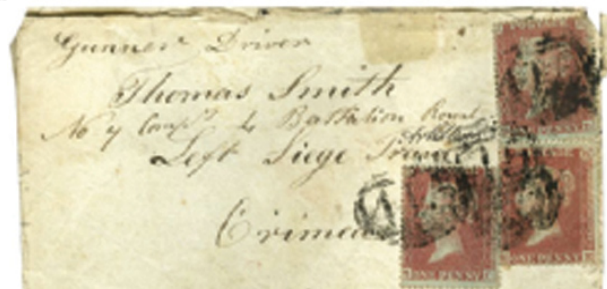 Gunner Driver
Thomas Smith
No 7 Compy 4 Battalion Royal
Artillery
Left Siege Train
Crimea
ONE PENNY
ONE PENNY